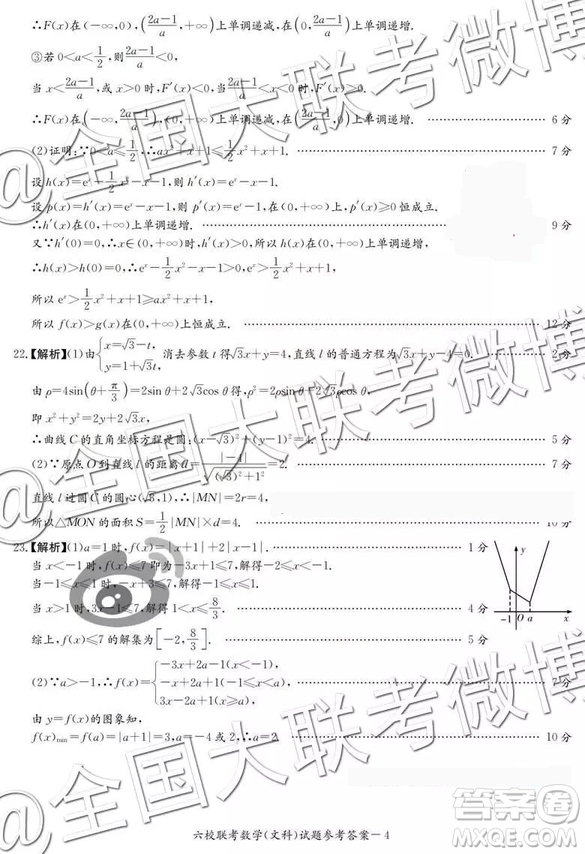 ∴F(x)在(-∞, (2a-1)/a), (0,+∞)上单调递减,在((2a-1)/a, 0)上单调递增.
③若0<a<1/2,则(2a-1)/a<0,
当x<(2a-1)/a或x>0时,F′(x)<0,当(2a-1)/a<x<0时,F′(x)>0.
∴F(x)在(-∞, (2a-1)/a), (0,+∞)上单调递减,在((2a-1)/a, 0)上单调递增. 6分
(2)证明:∵0<a≤1/2,∴ax²+x+1≤1/2x²+x+1. 7分
设h(x)=eˣ-1/2x²-x-1,则h′(x)=eˣ-x-1.
设p(x)=h′(x)=eˣ-x-1,则p′(x)=eˣ-1,在(0,+∞)上,p′(x)>0恒成立.
∴h′(x)在(0,+∞)上单调递增. 9分
又∵h′(0)=0,∴x∈(0,+∞)时,h′(x)>0,所以h(x)在(0,+∞)上单调递增,
∴h(x)>h(0)=0,∴eˣ-1/2x²-x-1>0,eˣ>1/2x²+x+1,
所以eˣ>1/2x²+x+1≥ax²+x+1,
所以f(x)>g(x)在(0,+∞)上恒成立. 12分
22.【解析】(1)由{x=√3-t, y=1+√3t, 消去参数t得√3x+y=4,直线l的普通方程为√3x+y-4=0. 2分
由ρ=4sin(θ+π/3)=2sinθ+2√3cosθ得,ρ²=2ρsinθ+2√3ρcosθ,
即x²+y²=2y+2√3x,
∴曲线C的直角坐标方程是圆:(x-√3)²+(y-1)²=4. 5分
(2)∵原点O到直线l的距离d=|-4|/√((√3)²+1²)=2. 7分
直线l过圆C的圆心(√3,1),∴|MN|=2r=4,
所以△MON的面积S=1/2|MN|×d=4. 10分
23.【解析】(1)a=1时,f(x)=|x+1|+2|x-1|. 1分
当x<-1时,f(x)≤7即为-3x+1≤7,解得-2≤x<-1.
当x>1时,3x-1≤7,解得1<x≤8/3. 4分
综上,f(x)≤7的解集为[-2, 8/3]. 5分
(2)∵a>-1,∴f(x)={-3x+2a-1(x<-1), -x+2a+1(-1≤x≤a), 3x-2a+1(x>a). 7分
由y=f(x)的图象知,
f(x)min=f(a)=|a+1|=3,a=-4或2,∴a=2. 10分
y
-1 O a x
六校联考数学(文科)试题参考答案-4
@全国大联考微博
@全国大联考微博
答案圈